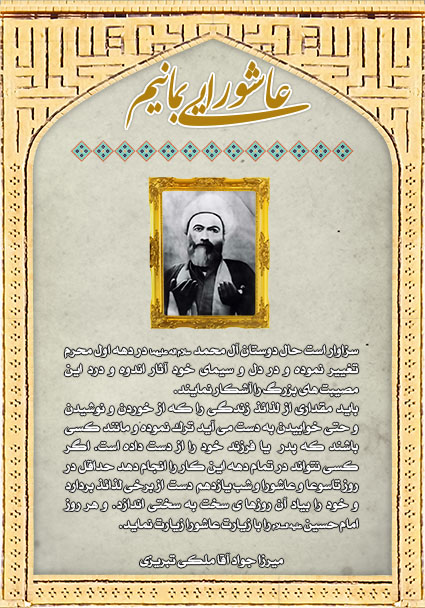 عاشورایی بمانیم
سزاوار است حال دوستان آل محمد سلام الله علیهما در دهه اول محرم
تغییر نموده و در دل و سیمای خود آثار اندوه و درد این
مصیبت های بزرگ را آشکار نمایند.
باید مقداری از لذائذ زندگی را که از خوردن و نوشیدن
و حتی خوابیدن به دست می آید ترک نموده و مانند کسی
باشند که پدر یا فرزند خود را از دست داده است. اگر
کسی نتواند در تمام دهه این کار را انجام دهد حداقل در
روز تاسوعا و عاشورا و شب یازدهم دست از برخی لذائذ بردارد
و خود را بیاد آن روزها ی سخت به سختی اندازد. و هر روز
امام حسین علیه السلام را با زیارت عاشورا زیارت نماید.
میرزا جواد آقا ملکی تبریزی